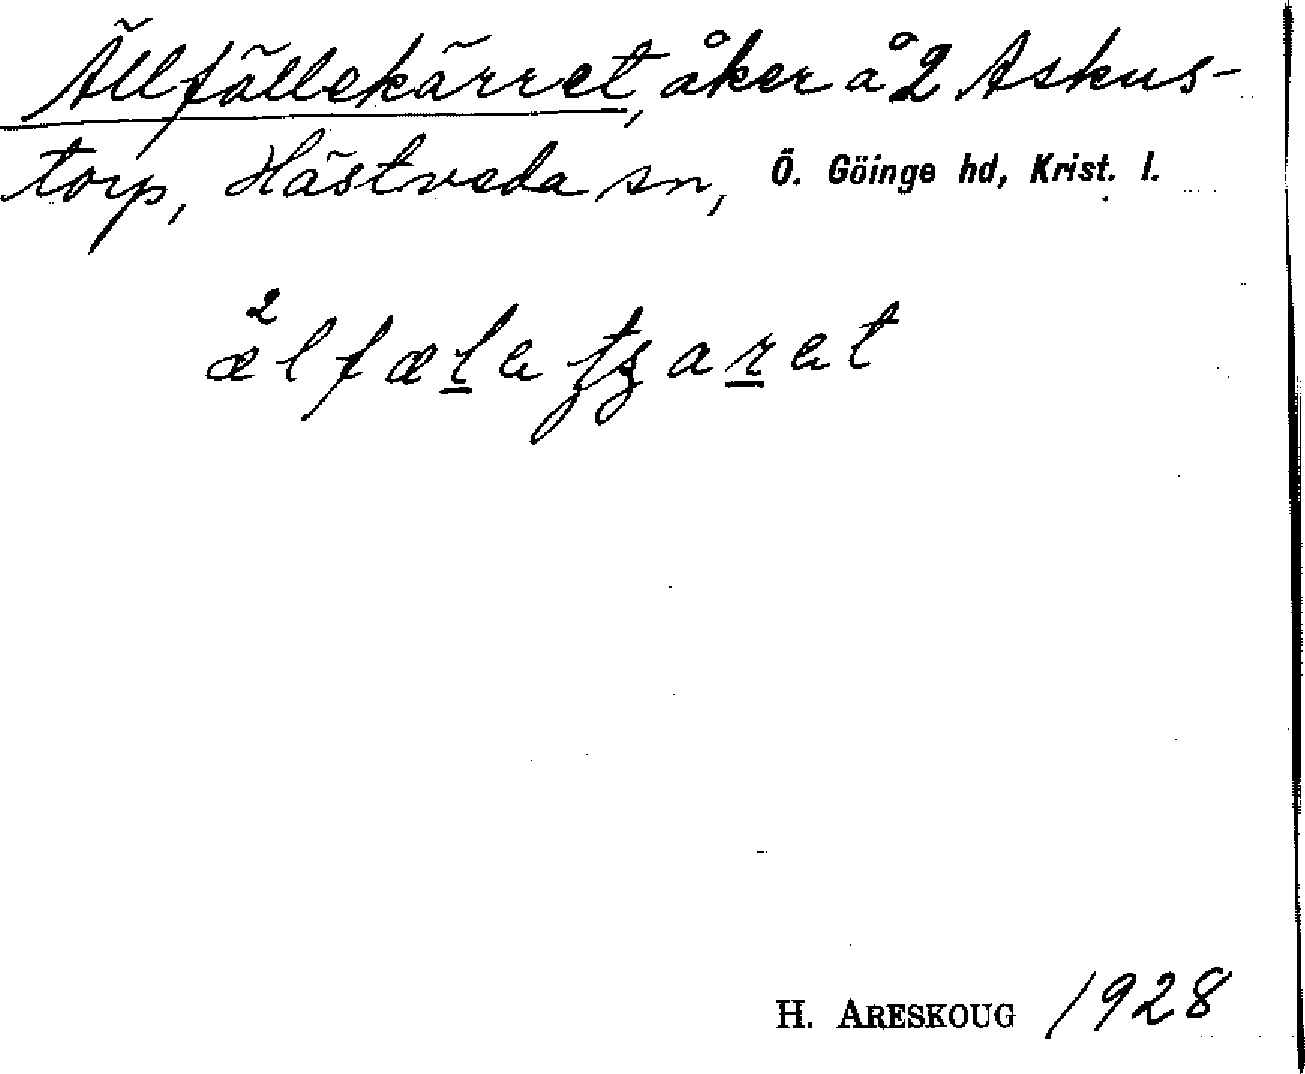 Ällfällekärret, åker å 2 Askus-
torp, Hästveda sn, Ö. Göinge hd, Krist. l.
H. ARESKOUG 1928